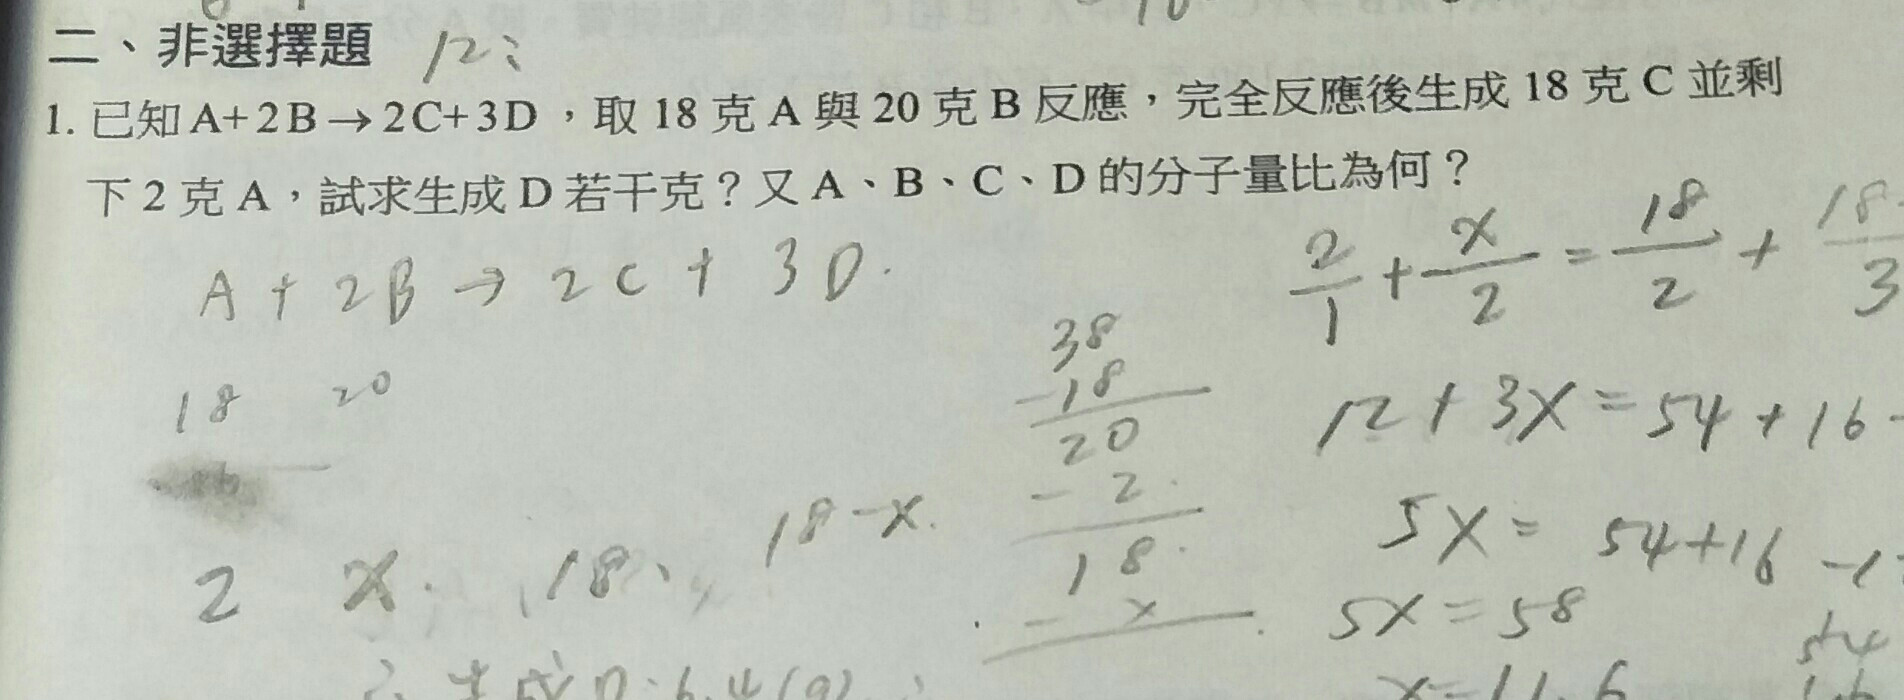 二、非選擇題 12:
1. 已知A+2B→2C+3D，取 18 克 A 與 20 克 B 反應，完全反應後生成 18 克 C 並剩
下 2 克 A，試求生成 D 若干克？又 A、B、C、D 的分子量比為何？
A + 2B → 2C + 3D.
2/1 + x/2 = 18/2 + 18-/3
18 20
38
-18
20
- 2.
18.
- x
12 + 3X = 54 + 16-
2 x. 18、 18-x.
5X = 54+16 -1
5X = 58
x=11.6
∴生成D:6.4(g)